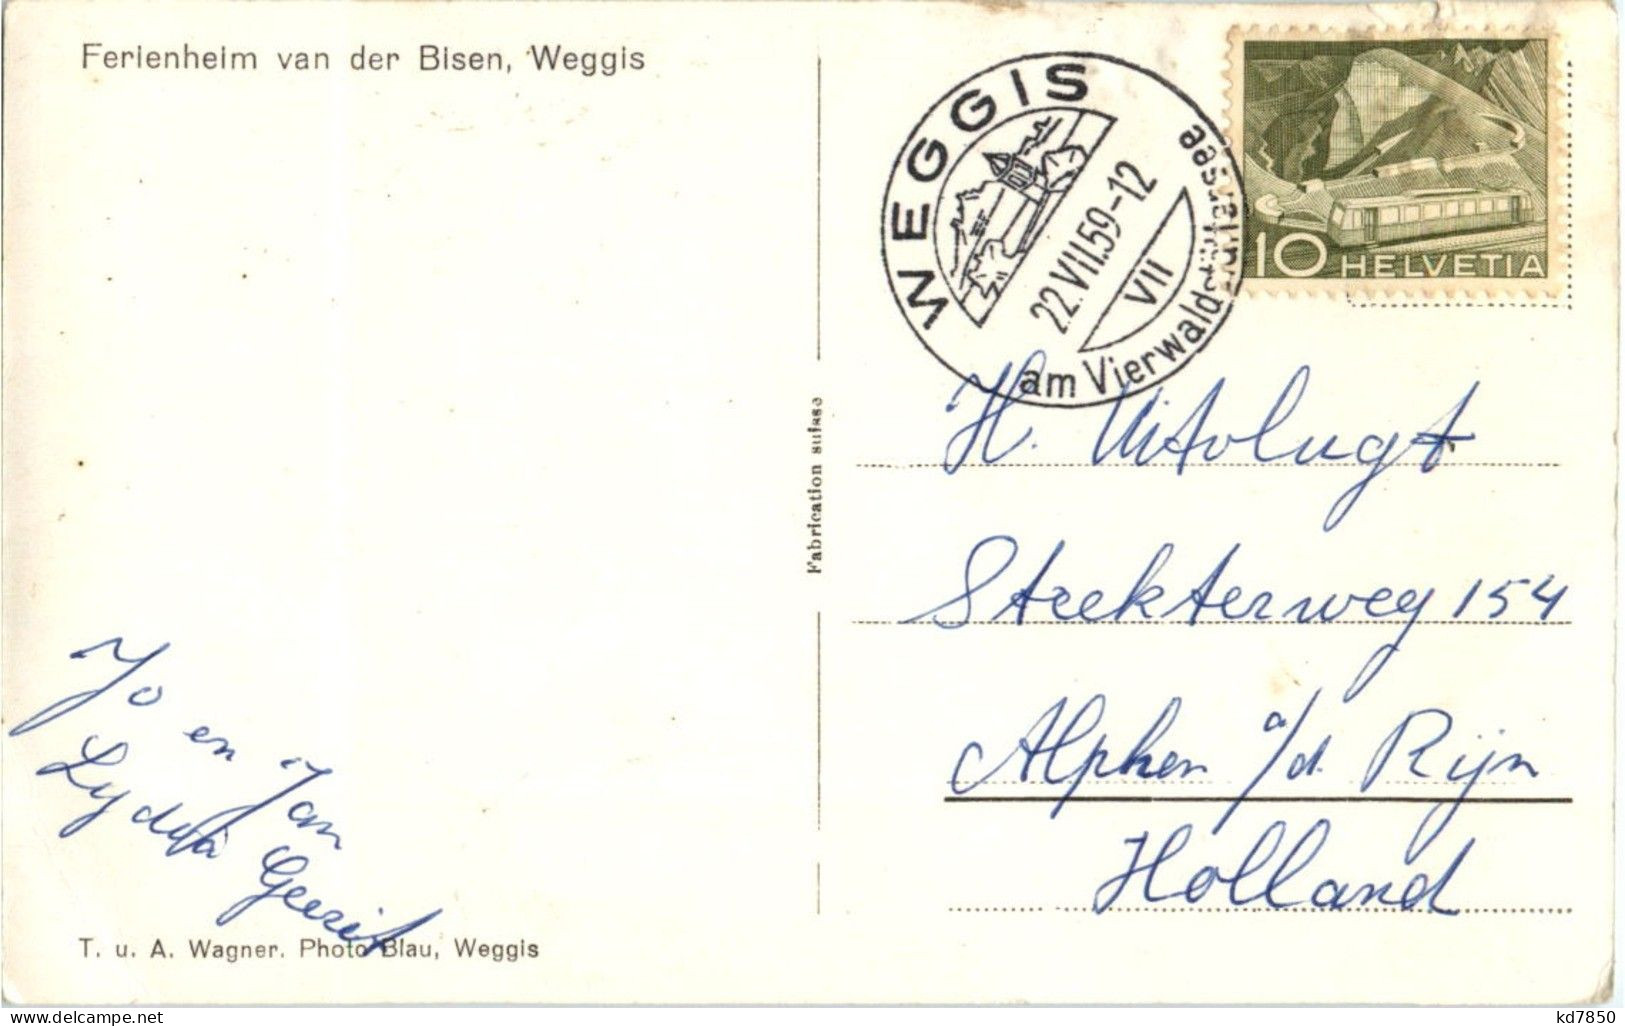 Ferienheim van der Bisen, Weggis
WEGGIS
22.VII.59-12
VII
am Vierwaldstättersee
10 HELVETIA
Fabrication suisse
H. Uitvlugt
Steekterweg 154
Alphen a/d. Rijn
Holland
Jo en Jan
Lydia
Geerit
T. u. A. Wagner. Photo Blau, Weggis
kd7850